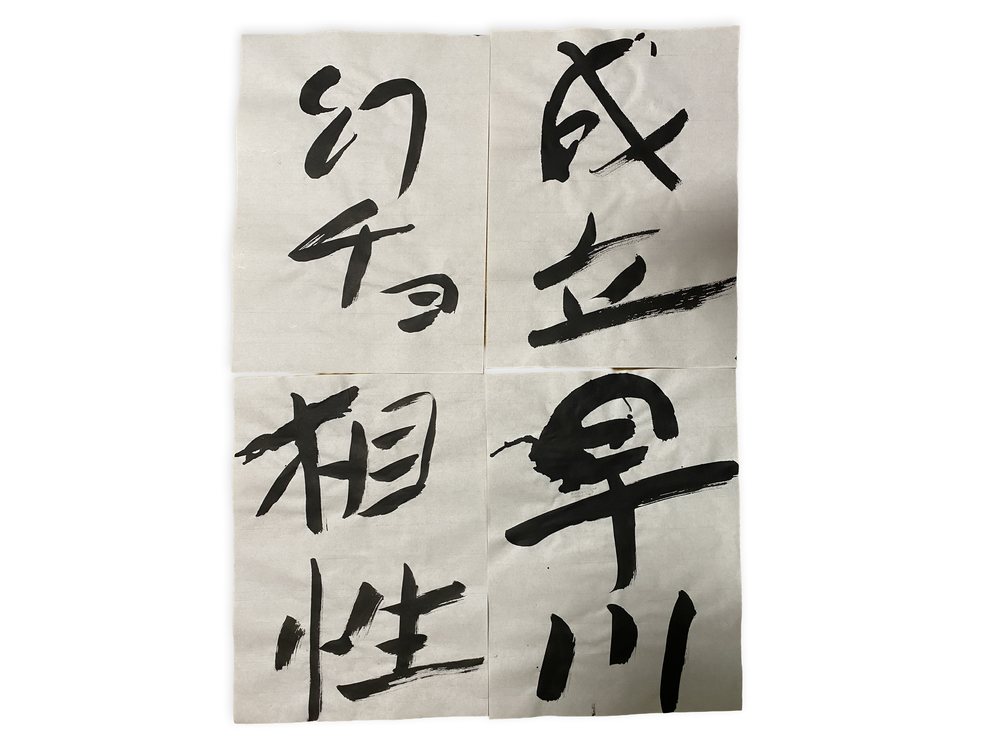 成立
幻チョ
早川
相性